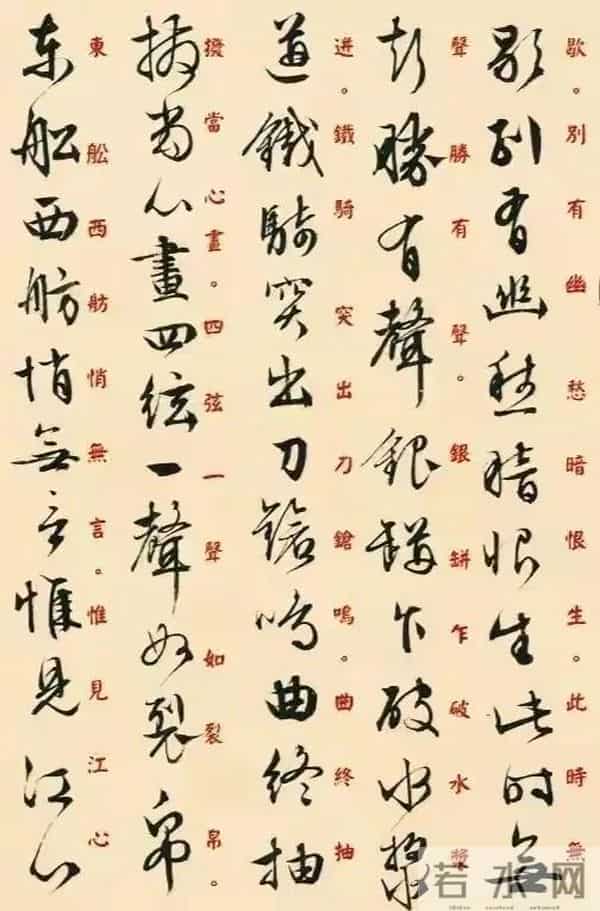 歇別有幽愁暗恨生此時無
歇。別有幽愁暗恨生。此時無
聲勝有聲銀缾乍破水漿
聲勝有聲。銀缾乍破水漿
迸鐵騎突出刀鎗鳴曲終抽
迸。鐵騎突出刀鎗鳴。曲終抽
撥當心畫四絃一聲如裂帛
撥當心畫。四弦一聲如裂帛。
東舩西舫悄無言惟見江心
東舩西舫悄無言。惟見江心
若水网